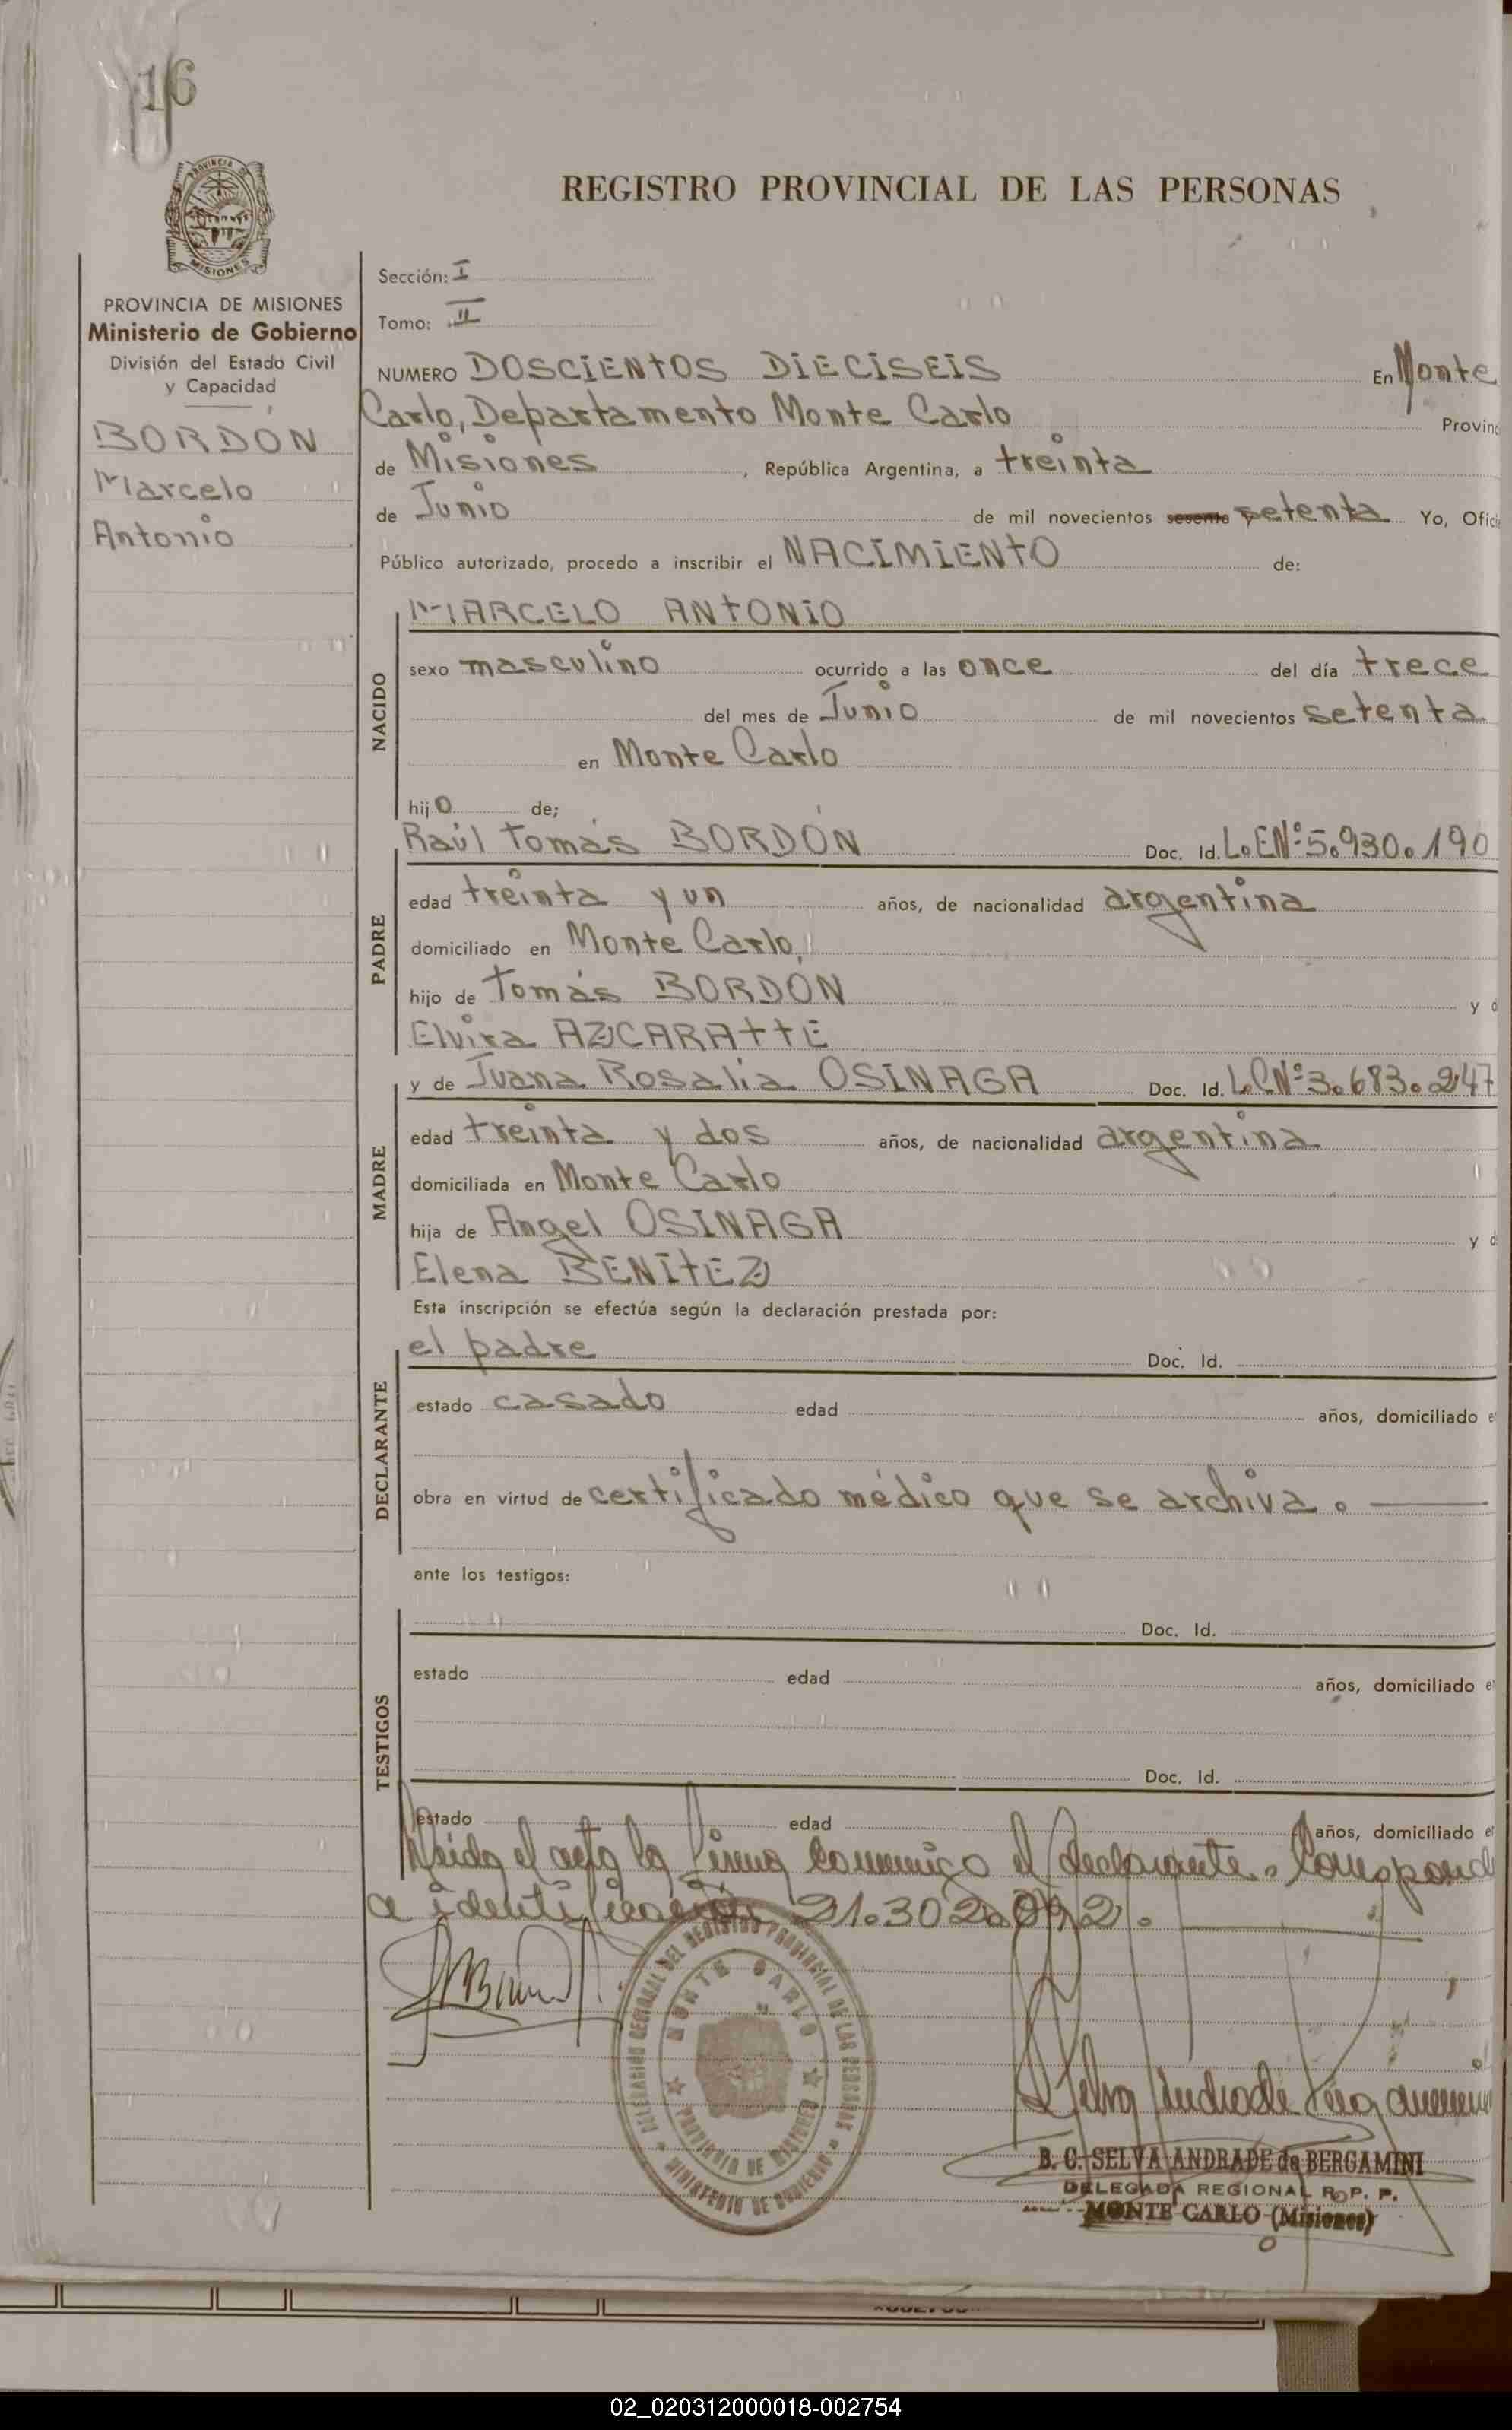 16
REGISTRO PROVINCIAL DE LAS PERSONAS
PROVINCIA DE MISIONES
PROVINCIA DE MISIONES
Ministerio de Gobierno
División del Estado Civil
y Capacidad
BORDÓN
Marcelo
Antonio
Sección: I
Tomo: II
NUMERO DOSCIENTOS DIECISEIS En Monte
Carlo, Departamento Monte Carlo Provinc
de Misiones, República Argentina, a treinta
de Junio de mil novecientos sesenta setenta Yo, Ofici
Público autorizado, procedo a inscribir el NACIMIENTO de:
NACIDO
MARCELO ANTONIO
sexo masculino ocurrido a las once del día trece
del mes de Junio de mil novecientos setenta
en Monte Carlo
hijo de;
PADRE
Raúl Tomás BORDÓN Doc. Id. L.E.Nº 5.930.190
edad treinta y un años, de nacionalidad argentina
domiciliado en Monte Carlo,
hijo de Tomás BORDÓN y d
Elvira AZCARATTE
MADRE
y de Juana Rosalía OSINAGA Doc. Id. L.C.Nº 3.683.247
edad treinta y dos años, de nacionalidad argentina
domiciliada en Monte Carlo
hija de Angel OSINAGA y d
Elena BENITEZ
Esta inscripción se efectúa según la declaración prestada por:
DECLARANTE
el padre Doc. Id.
estado casado edad años, domiciliado e
obra en virtud de certificado médico que se archiva.
ante los testigos:
TESTIGOS
Doc. Id.
estado edad años, domiciliado e
Doc. Id.
estado edad años, domiciliado e
Leida el acta la firma conmigo el declarante. Correspond
a identificación 21.302.092.
DELEGACION REGIONAL DEL REGISTRO PROVINCIAL DE LAS PERSONAS
MINISTERIO DE GOBIERNO
MONTE CARLO
PROVINCIA DE MISIONES
Selva Andrade
B. C. SELVA ANDRADE de BERGAMINI
DELEGADA REGIONAL R. P. P.
MONTE CARLO (Misiones)
02_020312000018-002754